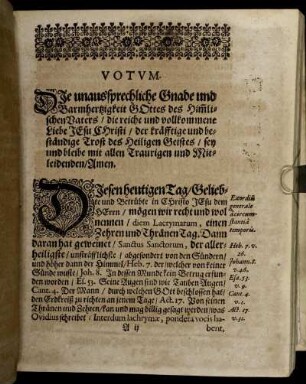 VOTVM.
DIe unaussprechliche Gnade und
Barmhertzigkeit GOttes des Him̃li-
schen Vaters / die reiche und vollkommene
Liebe JEsu Christi / der kräfftige und be-
ständige Trost des Heiligen Geistes / sey
und bleibe mit allen Traurigen und Mit-
leidenden / Amen.
DIesen heutigen Tag / Gelieb-
te und Betrübte in Christo JEsu dem
HErrn / mögen wir recht und wol
nennen / diem Lacrymarum, einen
Zehren und Thränen Tag. Dann
daran hat geweinet / Sanctus Sanctorum, der aller-
heiligste / unsträfflichste / abgesondert von den Sündern /
und höher dann der Himmel / Heb. 7. der welcher von keiner
Sünde wuste / Joh. 8. In dessen Munde kein Betrug erfun-
den worden / Es. 53. Seine Augen sind wie Tauben Augen /
Cant. 4. Der Mann / durch welchen GOtt beschlossen hat /
den Erdkreiß zu richten an jenem Tage / Act. 17. Von seinen
Thränen und Zehren / kan und mag billig gesagt werden was
Ovidius schreibet / Interdum lachrymæ, pondera vocis ha-
A ij
bent,
Exordiũ
generale
à
circum-
stantiâ
temporis.
Heb. 7. v.
26.
Johann. 8.
v. 46.
Esa. 53.
v. 9.
Cant. 4.
v. 1.
Act. 17.
v. 31.